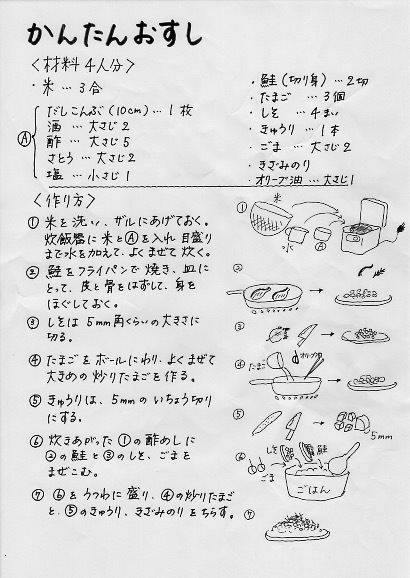 かんたんおすし
〈材料 4人分〉
・米 … 3合
Ⓐ
だしこんぶ(10cm)… 1枚
酒 … 大さじ2
酢 … 大さじ5
さとう … 大さじ2
塩 … 小さじ1
・鮭(切り身)… 2切
・たまご … 3個
・しそ … 4まい
・きゅうり … 1本
・ごま … 大さじ2
・きざみのり
・オリーブ油 … 大さじ1
〈作り方〉
① 米を洗い、ザルにあげておく。
炊飯器に米とⒶを入れ目盛り
まで水を加えて、よくまぜて炊く。
② 鮭をフライパンで焼き、皿に
とって、皮と骨をはずして、身を
ほぐしておく。
③ しそは5mm角くらいの大きさに
切る。
④ たまごをボールにわり、よくまぜて
大きめの炒りたまごを作る。
⑤ きゅうりは、5mmのいちょう切り
にする。
⑥ 炊きあがった①の酢めしに
②の鮭と③のしそ、ごまを
まぜこむ。
⑦ ⑥をうつわに盛り、④の炒りたまご
と、⑤のきゅうり、きざみのりをちらす。
①
米
水
Ⓐ
②
③
④
たまご
オリーブ油
⑤
5mm
⑥
しそ
鮭
ごま
ごはん
⑦